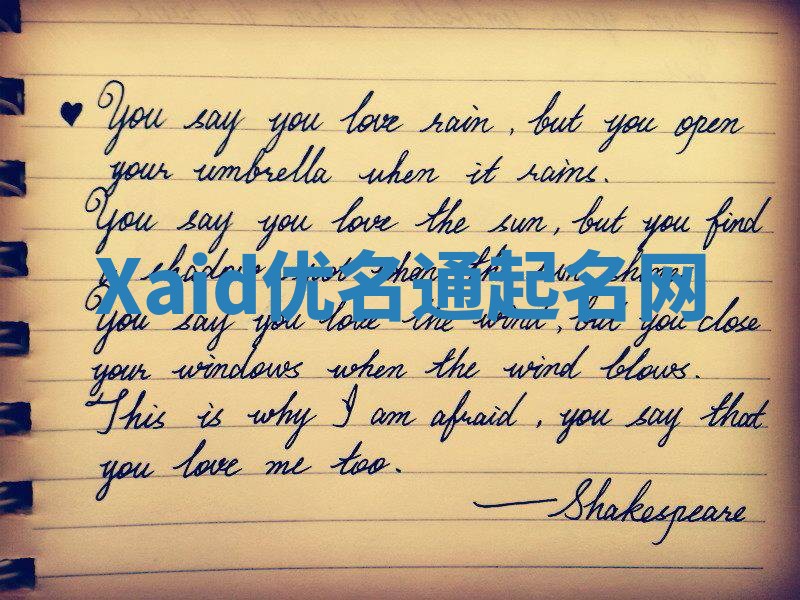 ♥ You say you love rain, but you open
your umbrella when it rains.
You say you love the sun, but you find
a shadow spot when the sun shines.
Xaid优名通起名网
You say you love the wind, but you close
your windows when the wind blows.
This is why I am afraid, you say that
you love me too.
— Shakespeare